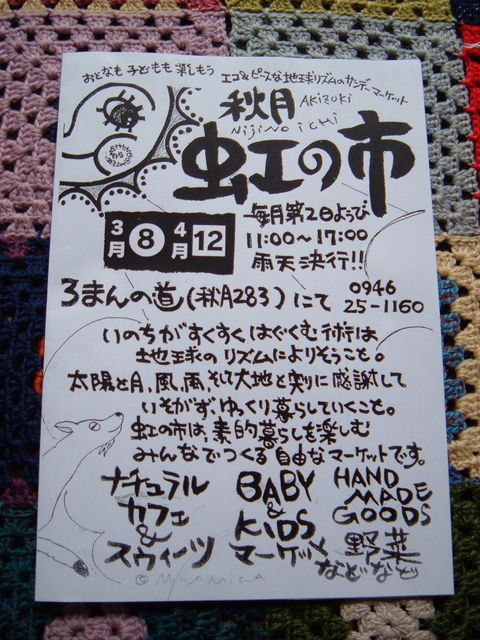 おとなも子どもも楽しもう
エコ&ピースな地球リズムのサンデーマーケット
秋月 AKIZUKI
NijiNo ichi
虹の市
3月 8 4月 12
毎月第2日ようび
11:00～17:00
雨天決行!!
ろまんの道(秋月283)にて
0946
25-1160
いのちがすくすくはぐくむ術は
地球のリズムによりそうこと。
太陽と月、風、雨、そして大地と実りに感謝して
いそがず、ゆっくり暮らしていくこと。
虹の市は、素的な暮らしを楽しむ
みんなでつくる自由なマーケットです。
ナチュラル
カフェ
&
スウィーツ
BABY
&
KiDS
マーケット
HAND
MADE
GOODS
野菜
などなど